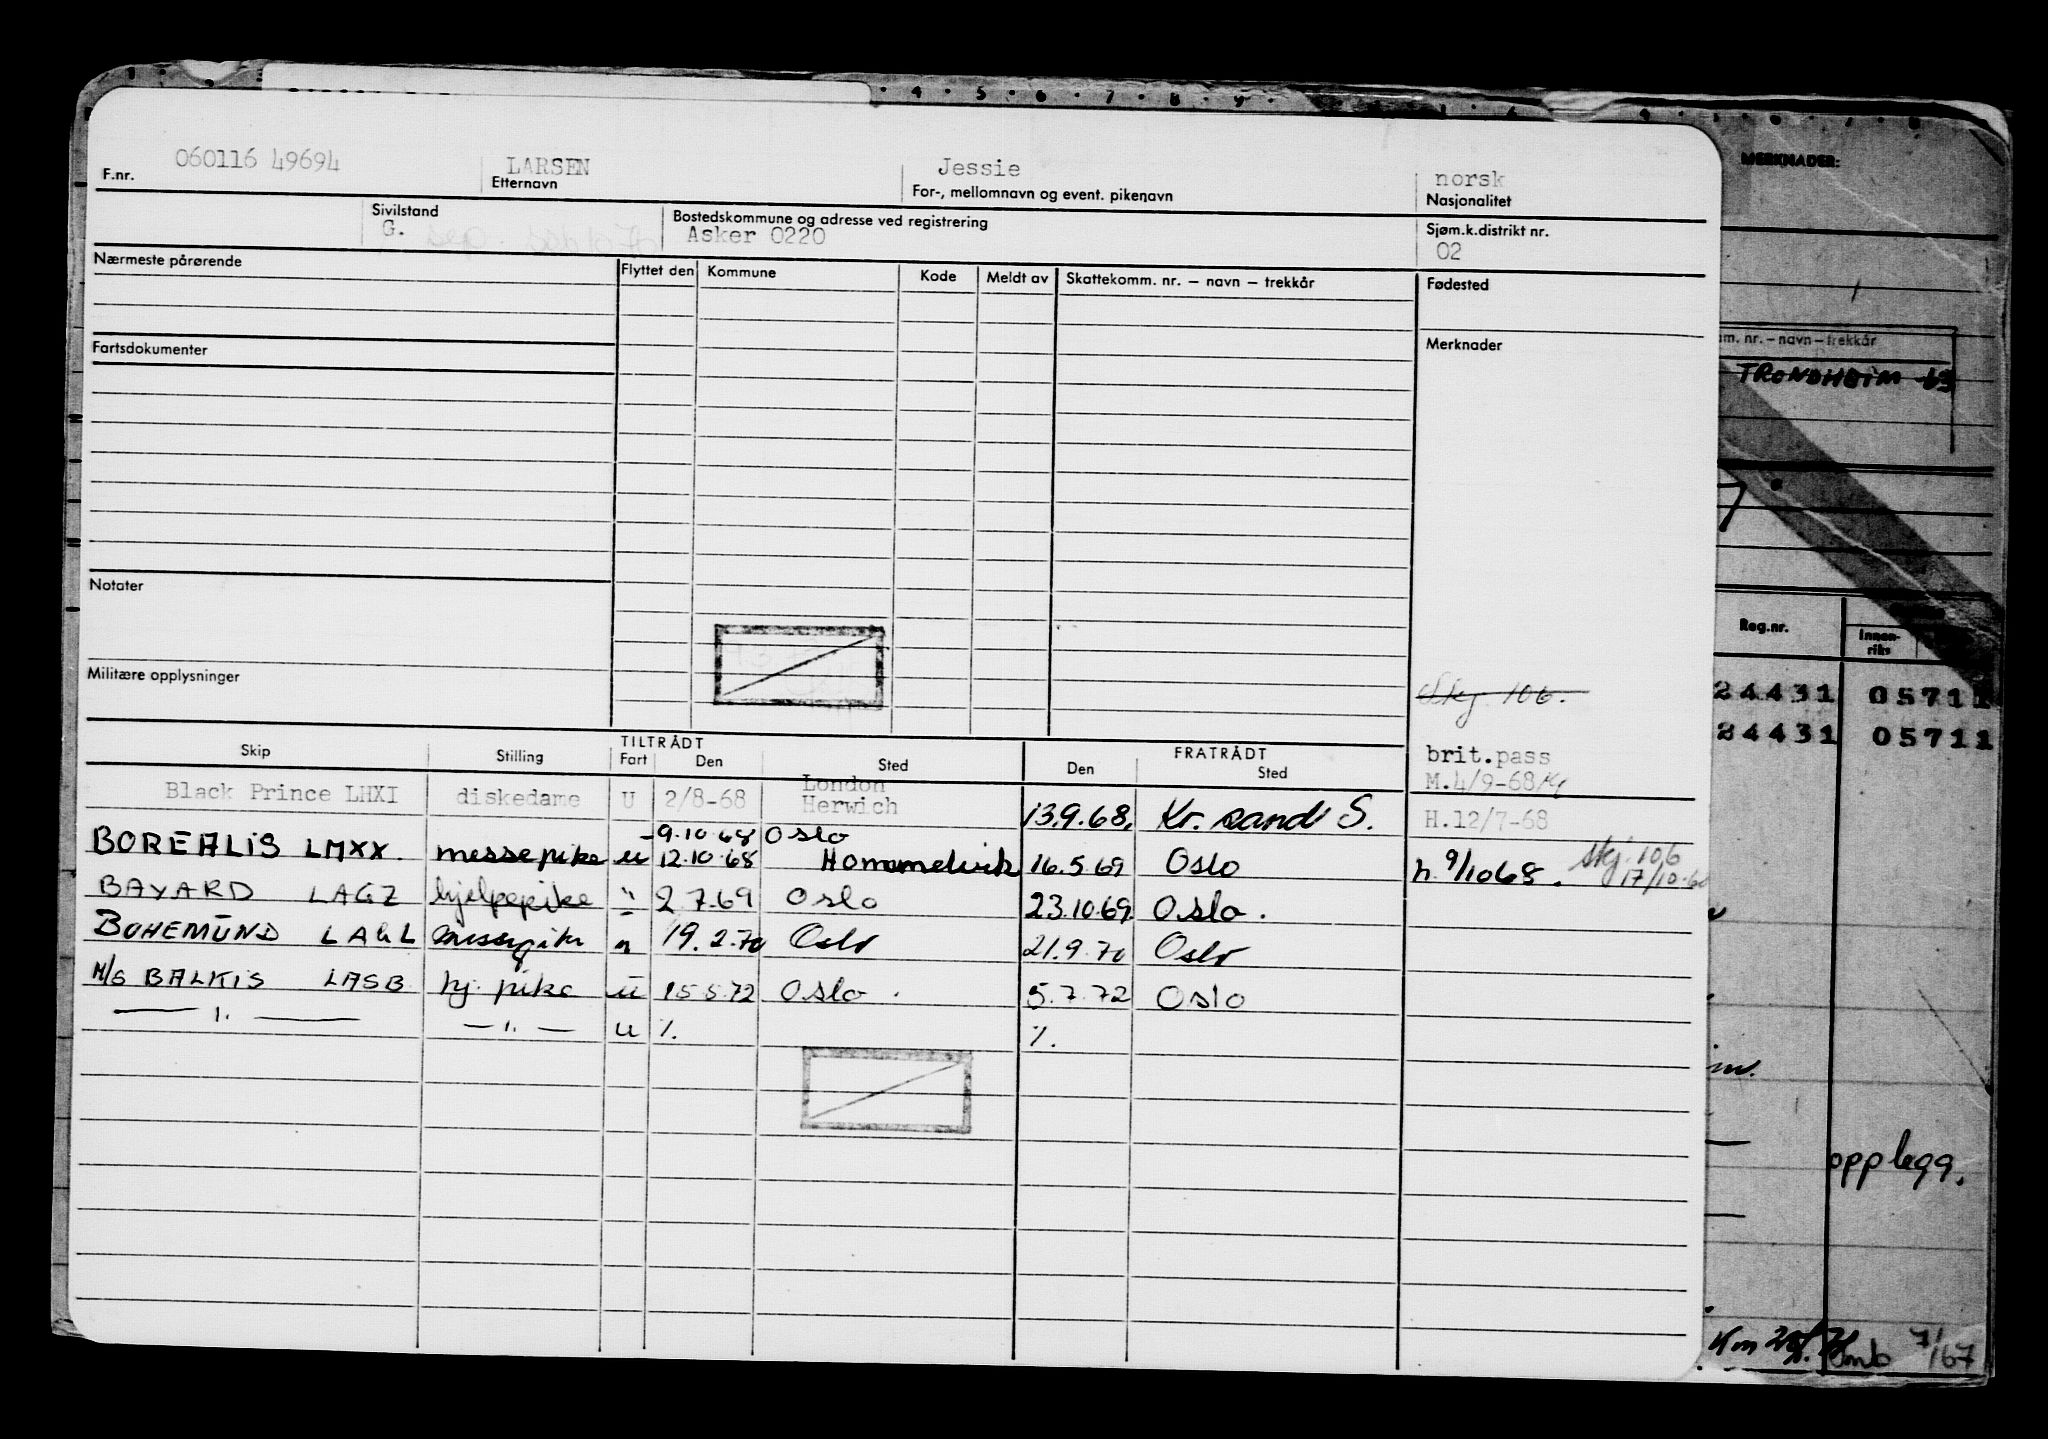 060116 49694 LARSEN Jessie norsk
F.nr. Etternavn For-, mellomnavn og event. pikenavn Nasjonalitet
Sivilstand Bostedskommune og adresse ved registrering Sjøm.k.distrikt nr.
G. sep. Asker 0220 02
Nærmeste pårørende Flyttet den Kommune Kode Meldt av Skattekomm. nr. – navn – trekkår Fødested
Fartsdokumenter Merknader
Notater
Militære opplysninger
Skj 106.
Skip Stilling TILTRÅDT Fart Den Sted FRATRÅDT Den Sted
brit.pass
M.4/9-68
Black Prince LHXI diskedame U 2/8-68 London Herwich 13.9.68. Kr. sand S. H.12/7-68
-9.10.68 Oslo
BOREALIS LMXX. messepike u 12.10.68 Hommelvik 16.5.69 Oslo h. 9/1068. skj. 106 17/10-68
BAYARD LAGZ hjelpepike " 2.7.69 Oslo 23.10.69 Oslo.
BOHEMUND LAGL messepike " 19.2.70 Oslo 21.9.70 Oslo
M/S BALKIS LASB hj. pike u 15.5.72 Oslo. 5.7.72 Oslo
— ". — — ". — u %. %.
MERKNADER:
m. nr. – navn – trekkår
TRONDHEIM 63
Reg.nr. Innen-riks
24431 05711
24431 05711
opplegg.
7/67